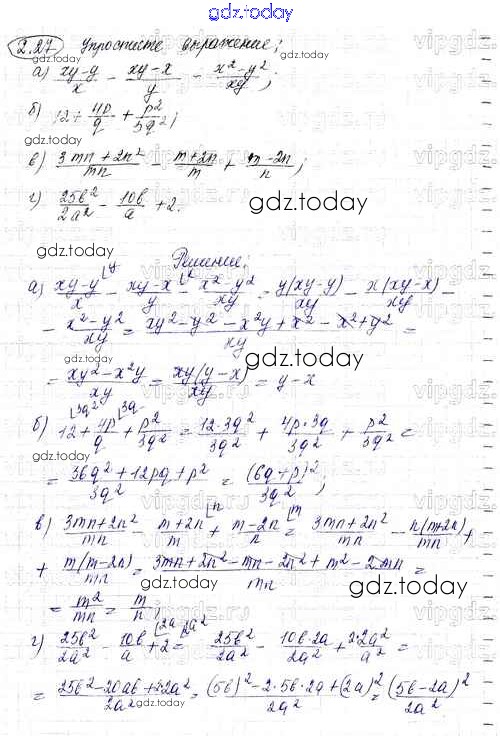 gdz.today
2.27 Упростите выражение:
а) (xy-y)/x - (xy-x)/y - (x²-y²)/xy;
б) 12 + 4p/q + p²/3q²;
в) (3mn+2n²)/mn - (m+2n)/m + (m-2n)/n;
г) 25b²/2a² - 10b/a + 2.
gdz.today
Решение:
а) (xy-y)/x - (xy-x)/y - (x²-y²)/xy = y(xy-y)/xy - x(xy-x)/xy -
- (x²-y²)/xy = (xy²-y²-x²y+x²-x²+y²)/xy =
= (xy²-x²y)/xy = xy(y-x)/xy = y-x
б) 12 + 4p/q + p²/3q² = 12·3q²/3q² + 4p·3q/3q² + p²/3q² =
= (36q²+12pq+p²)/3q² = (6q+p)²/3q²;
в) (3mn+2n²)/mn - (m+2n)/m + (m-2n)/n = (3mn+2n²)/mn - n(m+2n)/mn +
+ m(m-2n)/mn = (3mn+2n²-mn-2n²+m²-2mn)/mn =
= m²/mn = m/n;
г) 25b²/2a² - 10b/a + 2 = 25b²/2a² - 10b·2a/2a² + 2·2a²/a² =
= (25b²-20ab+2·2a²)/2a² = ((5b)²-2·5b·2a+(2a)²)/2a² = (5b-2a)²/2a²